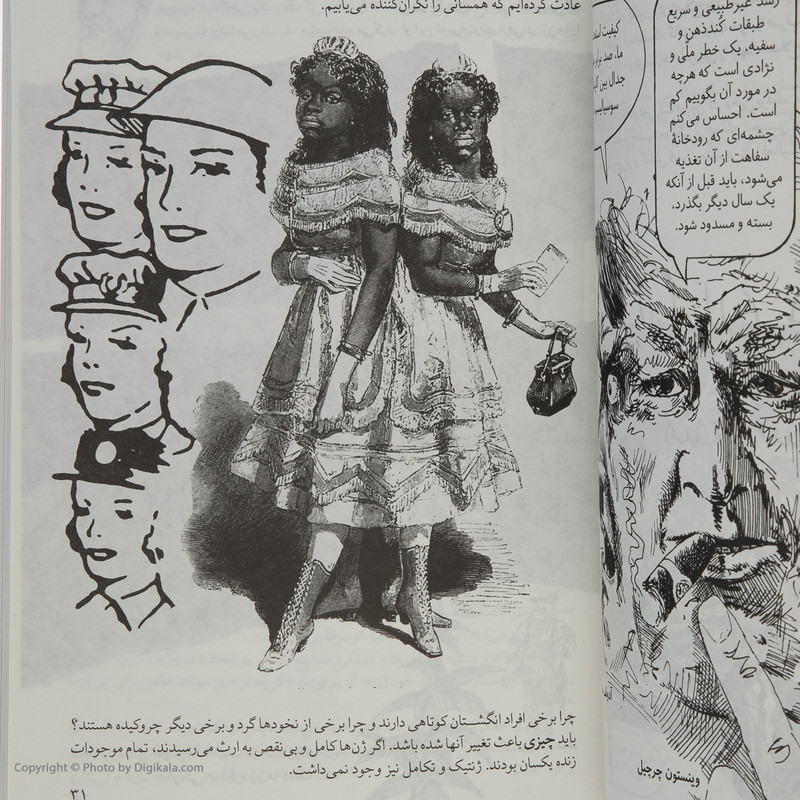 عادت کرده‌ایم که همسانی را نگران‌کننده می‌یابیم.
چرا برخی افراد انگشتان کوتاهی دارند و چرا برخی از نخودها گرد و برخی دیگر چروکیده هستند؟
باید چیزی باعث تغییر آنها شده باشد. اگر ژن‌ها کامل و بی‌نقص به ارث می‌رسیدند، تمام موجودات
زنده یکسان بودند. ژنتیک و تکامل نیز وجود نمی‌داشت.
۳۱
رشد غیرطبیعی و سریع
طبقات کُندذهن و
سفیه، یک خطر ملّی و
نژادی است که هرچه
در مورد آن بگوییم کم
است. احساس می‌کنم
چشمه‌ای که رودخانهٔ
سفاهت از آن تغذیه
می‌شود، باید قبل از آنکه
یک سال دیگر بگذرد،
بسته و مسدود شود.
کیفیت
ما، صد
جدال بین
وینستون چرچیل
Copyright © Photo by Digikala.com